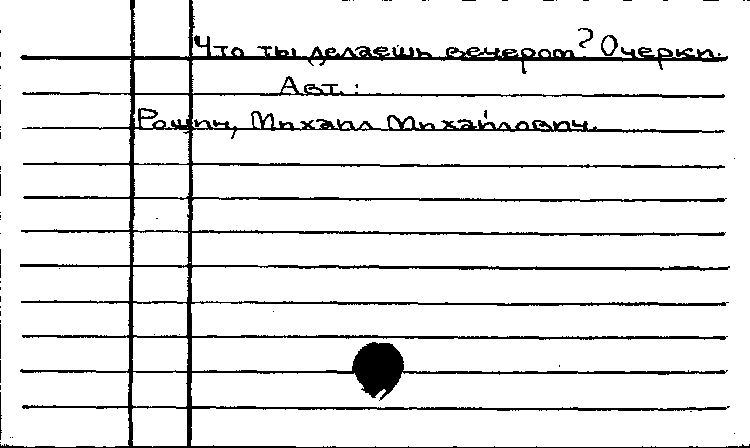 Что ты делаешь вечером? Очерки.
Авт.:
Рощин, Михаил Михайлович.